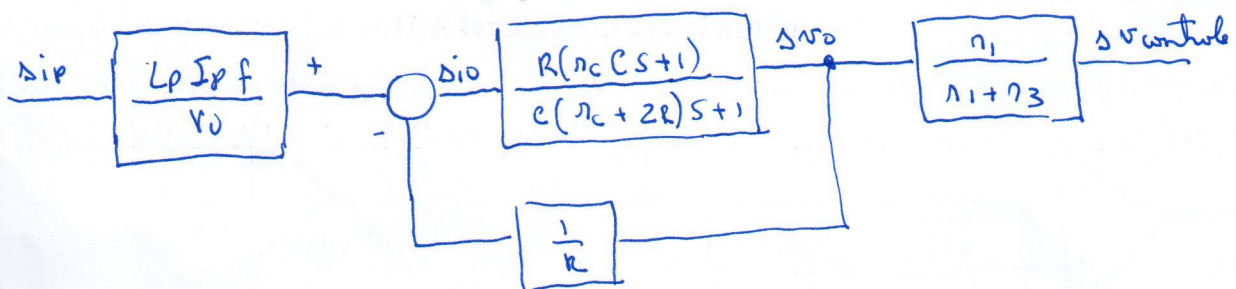 sip
Lp Ip f
Vo
+
-
sio
R(rc C S+1)
C(rc + 2R)S+1
svo
r1
r1+r3
sv controle
1
R